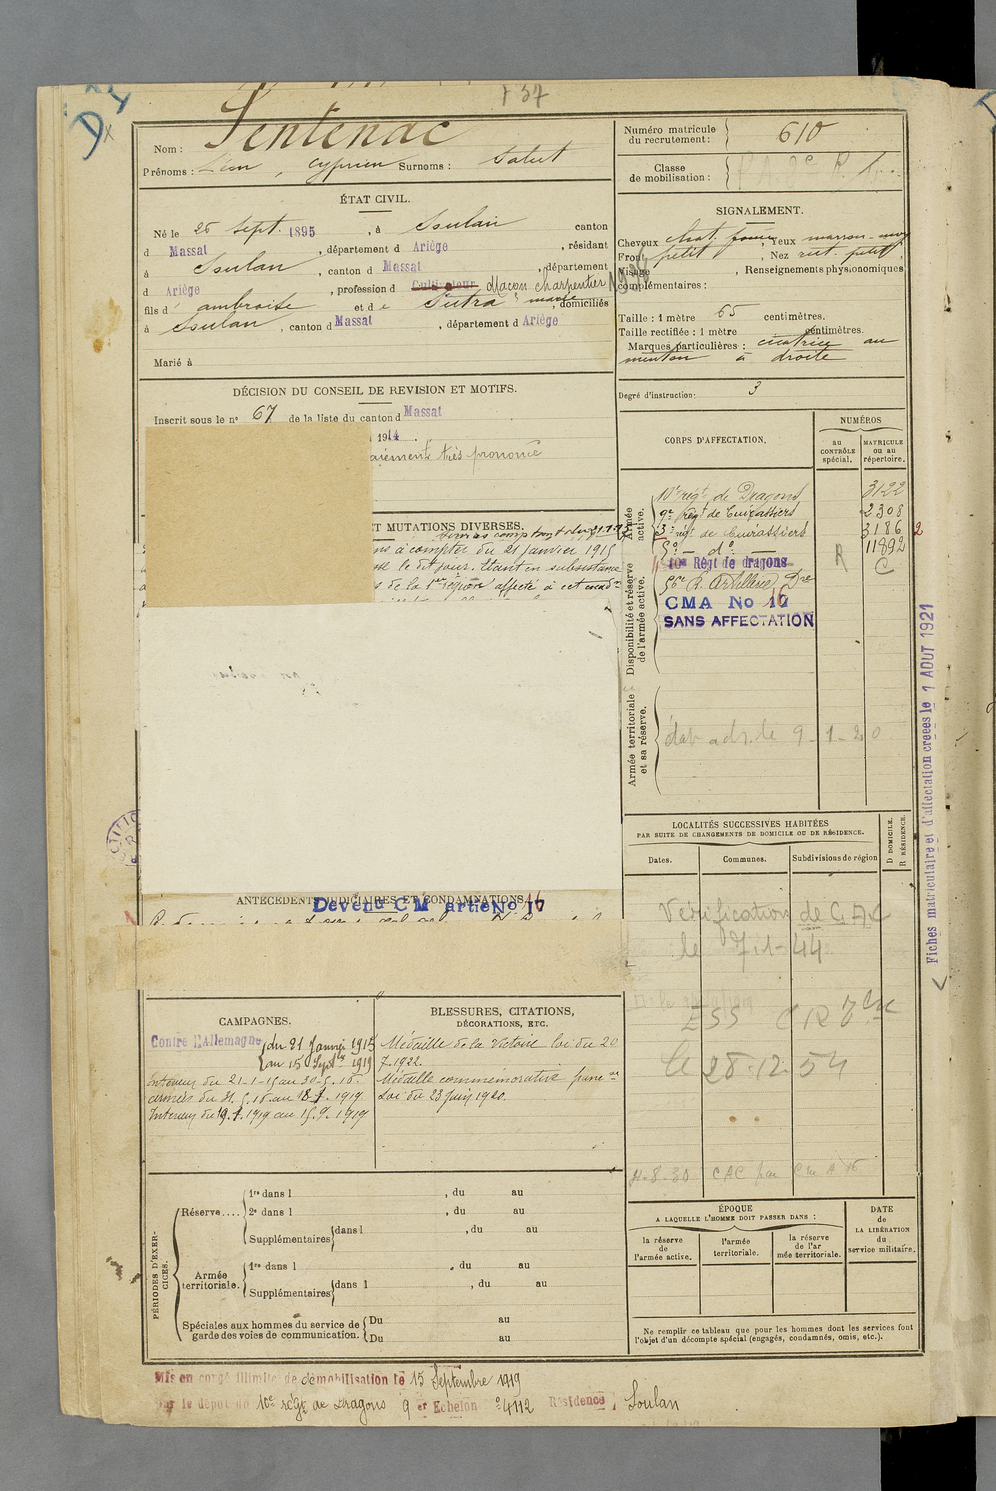 D4
137
Nom : Sentenac
Prénoms : Léon, Cyprien Surnoms : Salut
Numéro matricule du recrutement : 610
Classe de mobilisation :
ÉTAT CIVIL.
Né le 26 Sept. 1895, à Soulan canton
d Massat, département d Ariège, résidant
à Soulan, canton d Massat, département
d Ariège, profession d Cultivateur Maçon charpentier
fils d' ambroise et de Sutra marie, domiciliés
à Soulan, canton d Massat, département d Ariège
Marié à
SIGNALEMENT.
Cheveux chat. foncé, Yeux marron
Front petit, Nez rect. petit,
Visage, Renseignements physionomiques
complémentaires :
Taille : 1 mètre 65 centimètres.
Taille rectifiée : 1 mètre centimètres.
Marques particulières : cicatrice au
menton à droite
Degré d'instruction : 3
DÉCISION DU CONSEIL DE REVISION ET MOTIFS.
Inscrit sous le n° 67 de la liste du canton d Massat
1914
très prononcé
ET MUTATIONS DIVERSES.
ns à compter du 21 janvier 1915
le dit jour. Étant en subsistance
de la 1re région affecté à cet
CORPS D'AFFECTATION.
NUMÉROS
au CONTRÔLE spécial.
MATRICULE ou au répertoire.
Armée active.
10e régt de Dragons 3122
9e Régt de Cuirassiers 2308
3e régt de Cuirassiers 3186 2
5e — do — R 11892
Disponibilité et réserve de l'armée active.
10e Régt de dragons C
56e R. Artillerie Dre
CMA No 16
SANS AFFECTATION
Armée territoriale et sa réserve.
le 9-1-20
LOCALITÉS SUCCESSIVES HABITÉES
PAR SUITE DE CHANGEMENTS DE DOMICILE OU DE RÉSIDENCE.
Dates.
Communes.
Subdivisions de région
D DOMICILE.
R RÉSIDENCE.
Vérification de CAC
le 7-1-44
ESS CR
le 28.12.54
11-8-30 CAC par CM A 16
Fiches matriculaire et d'affectation créées le 1 AOUT 1921
ANTÉCÉDENTS JUDICIAIRES ET CONDAMNATIONS
Devenu C M artie No 16
CAMPAGNES.
Contre l'Allemagne du 21 Janvier 1915
au 15 Septbre 1919
Intérieur du 21-1-15 au 30-5-16.
armées du 31.5.16 au 18.7.1919
Intérieur du 19.7.1919 au 15.9.1919
BLESSURES, CITATIONS,
DÉCORATIONS, ETC.
Médaille de la Victoire loi du 20
7.1922.
Médaille commémorative
Loi du 23 juin 1920.
PÉRIODES D'EXERCICES.
Réserve....
1re dans l , du au
2e dans l , du au
Supplémentaires dans l , du au
Armée territoriale.
1re dans l , du au
Supplémentaires dans l , du au
Spéciales aux hommes du service de
garde des voies de communication.
Du au
Du au
ÉPOQUE
A LAQUELLE L'HOMME DOIT PASSER DANS :
la réserve de l'armée active.
l'armée territoriale.
la réserve de l'armée territoriale.
DATE de LA LIBÉRATION du service militaire.
Ne remplir ce tableau que pour les hommes dont les services font
l'objet d'un décompte spécial (engagés, condamnés, omis, etc.).
Mis en congé illimité de démobilisation le 15 Septembre 1919
par le dépôt du 10e régt de Dragons 9 er Echelon n° 4112 Résidence Soulan